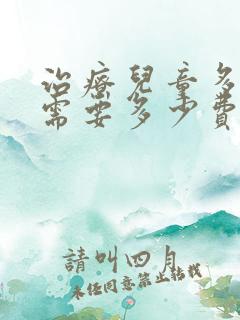 治療兒童多
需要多少費
請叫四月
未經同意禁止轉載